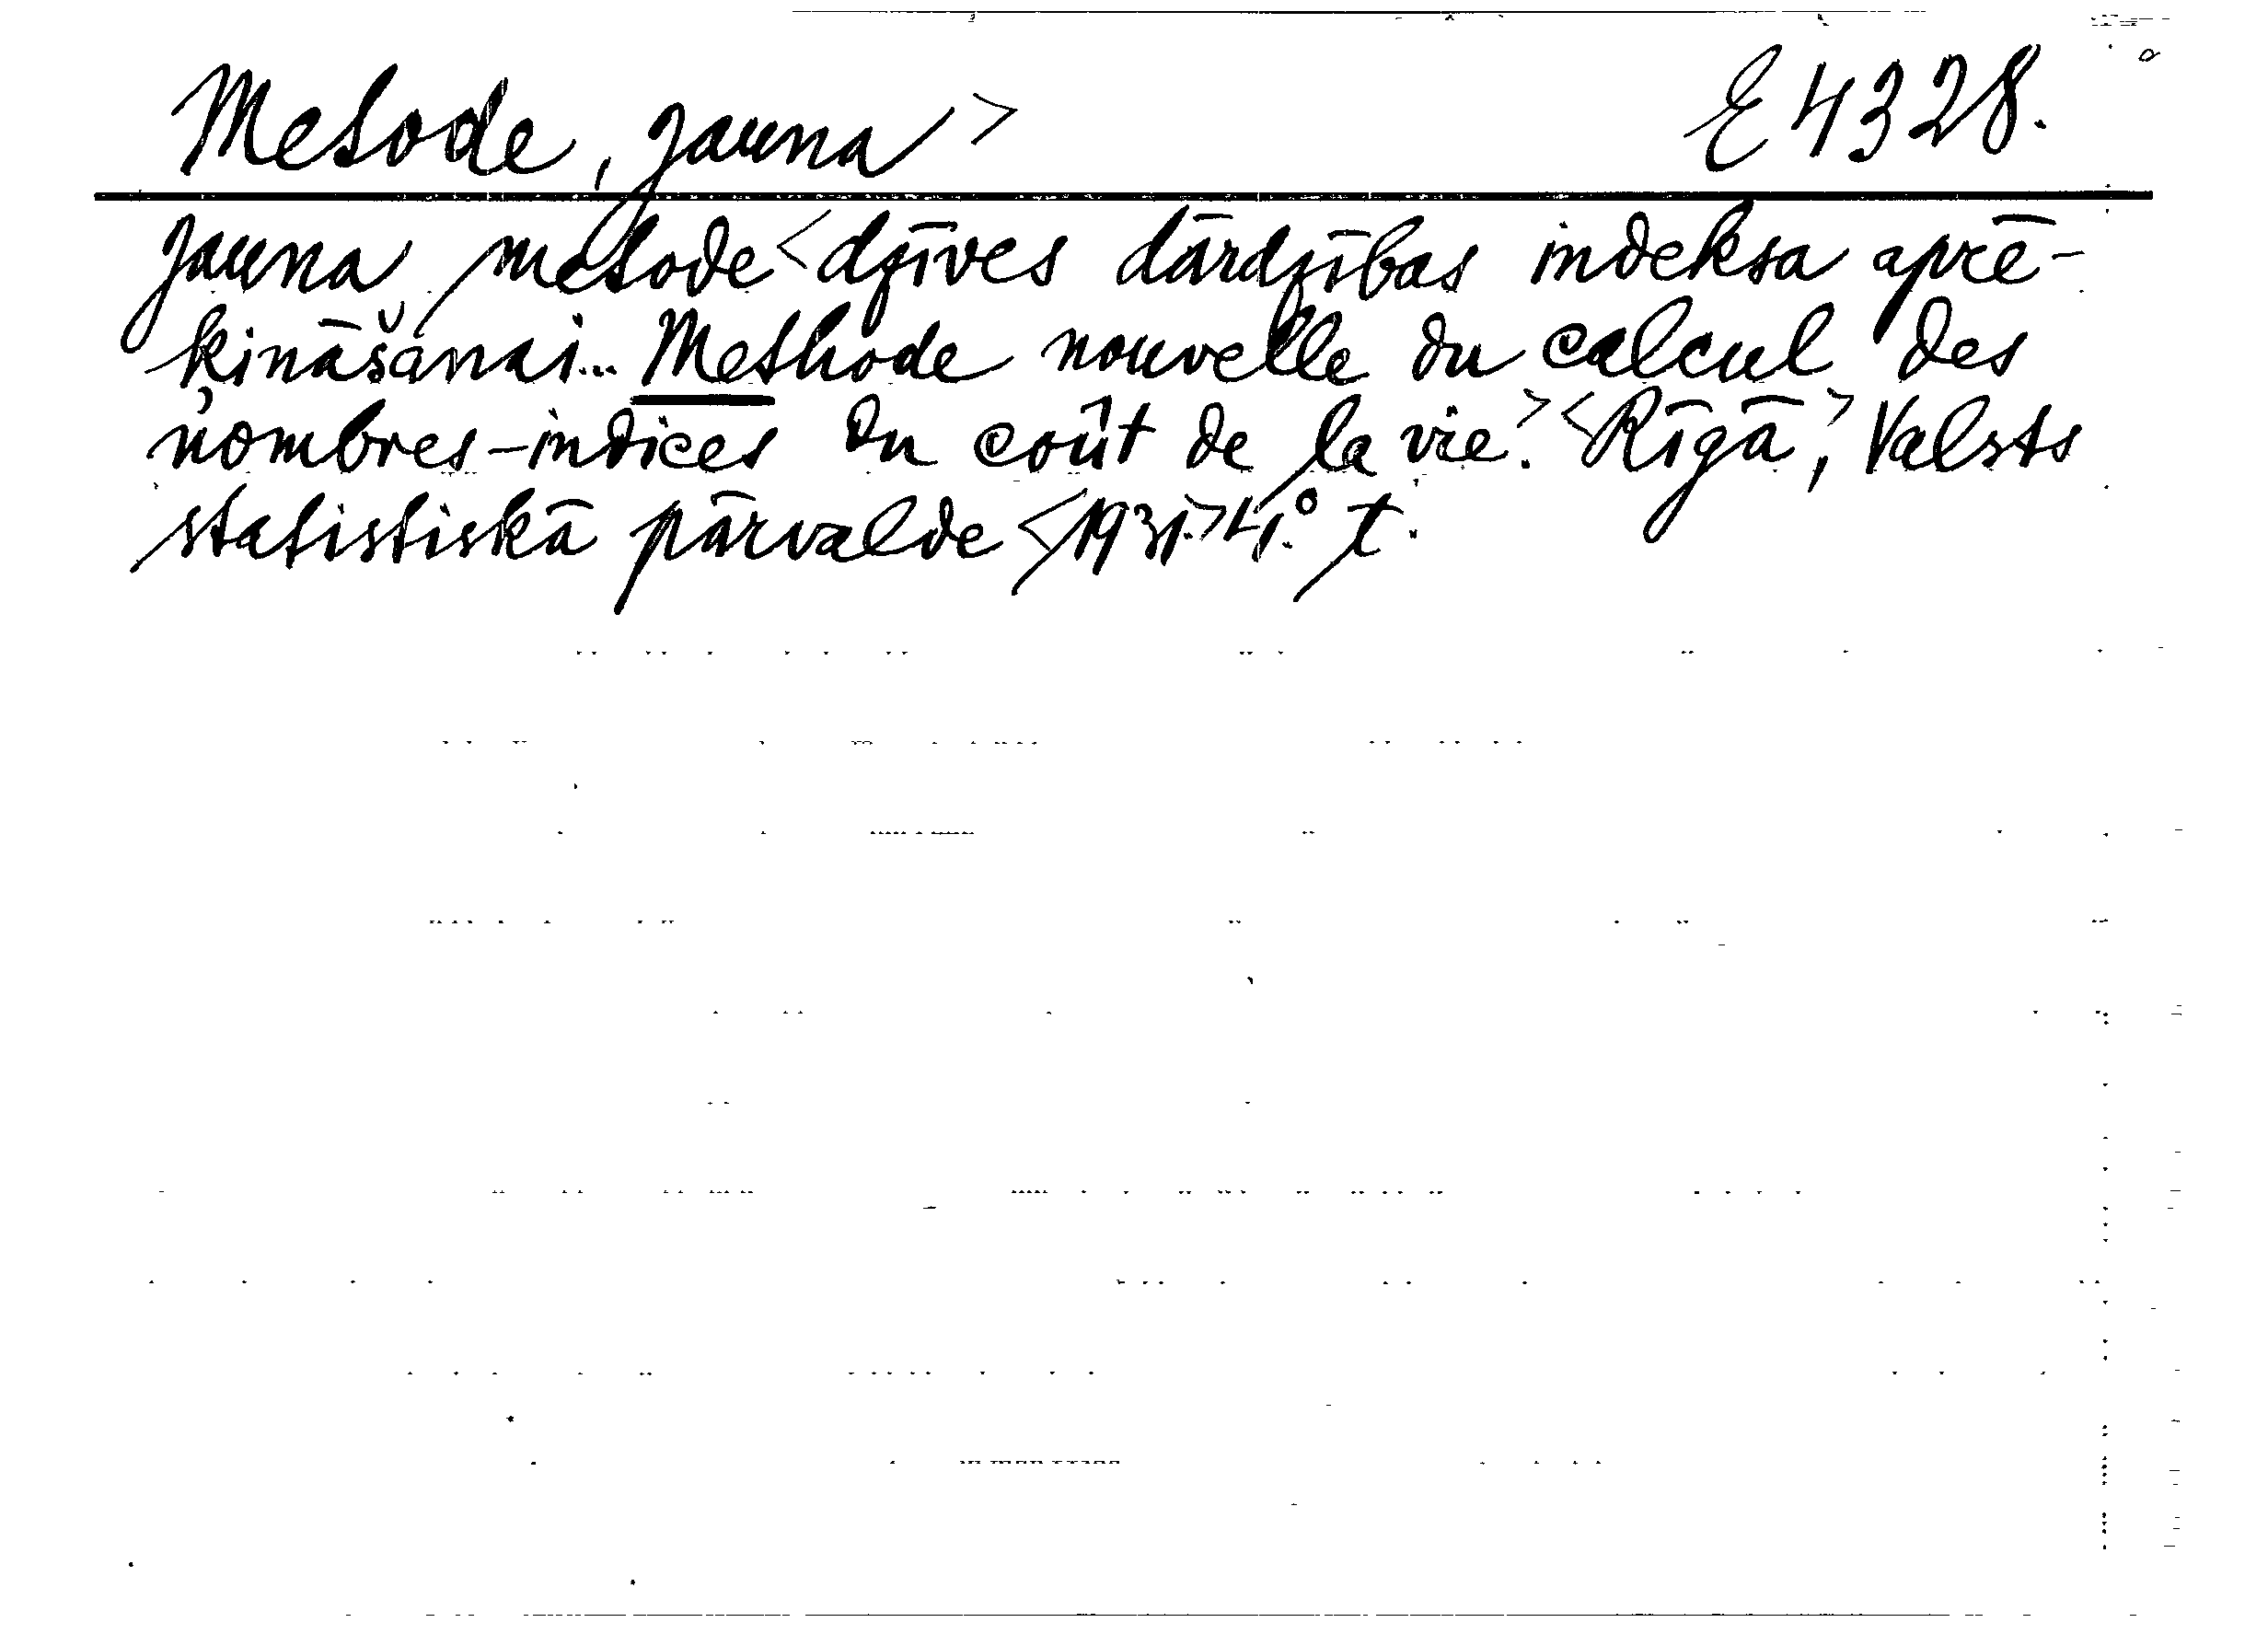 Metode, jauna > E 4328.
Jauna metode < dzīves dārdzības indeksa aprē-
ķināšanai... Methode nouvelle du calcul des
nombres-indices du coût de la vie. > < Rīgā, > Valsts
statistiskā pārvalde < 1931. > 4.° t.